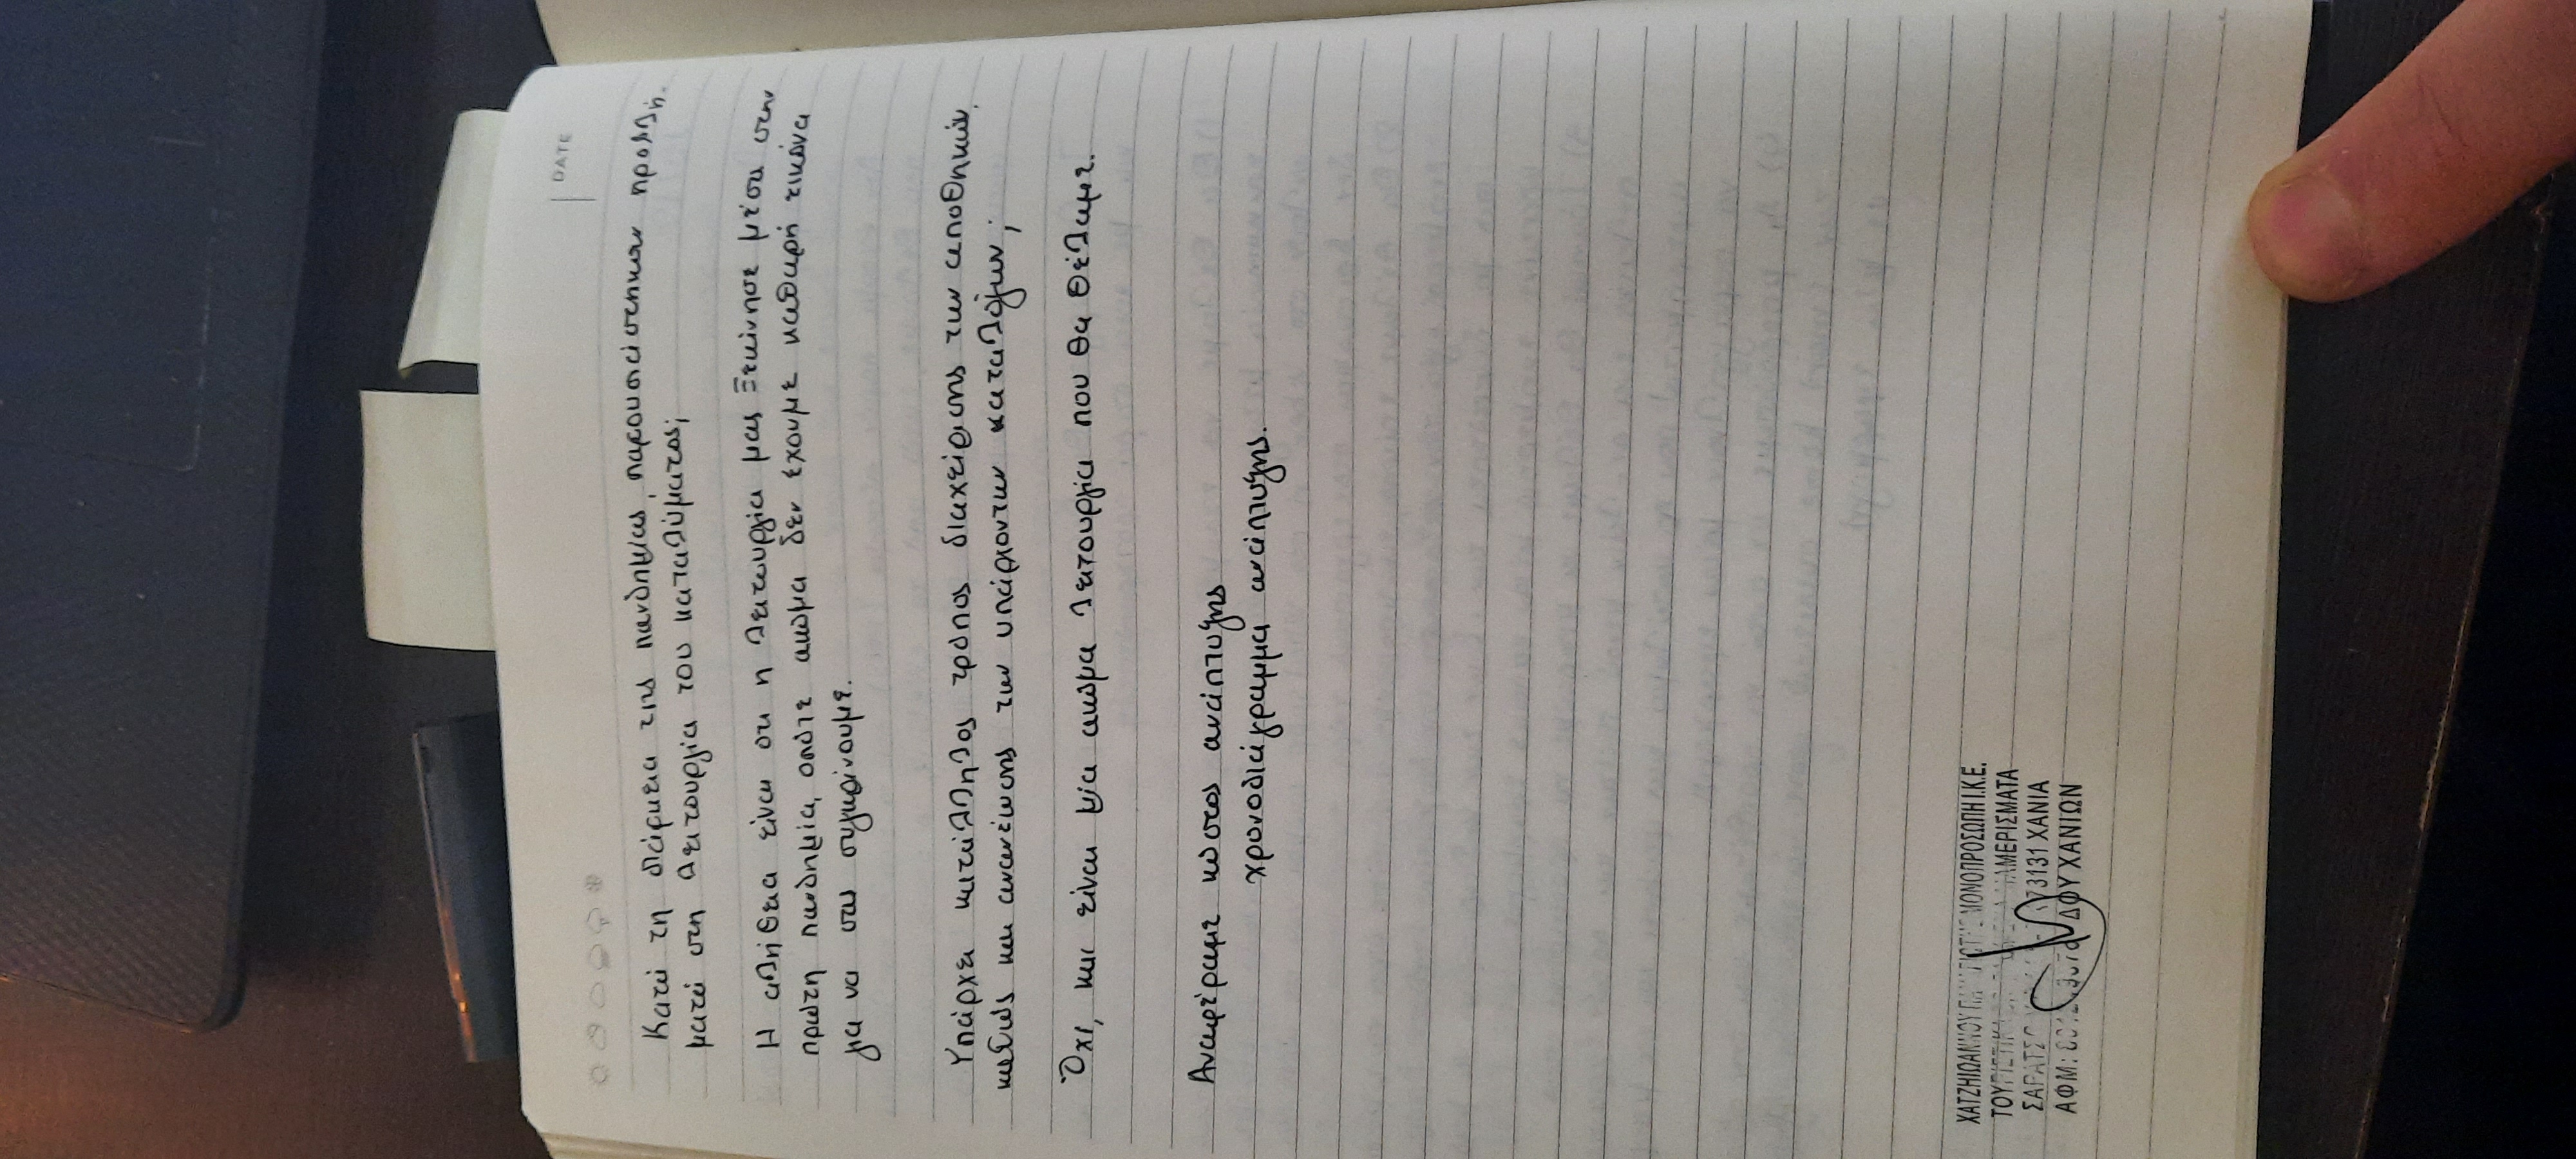 DATE
Κατά τη διάρκεια της πανδημίας, παρουσιάστηκαν προβλή-
ματα στη λειτουργία του καταλύματος;
Η αλήθεια είναι ότι η λειτουργία μας ξεκίνησε μέσα στην
πρώτη πανδημία, οπότε ακόμα δεν έχουμε καθαρή εικόνα
για να σας συγκρίνουμε.
Υπάρχει κατάλληλος τρόπος διαχείρισης των αποθηκών,
καθώς και ανανέωσης των υπάρχοντων καταλόγων;
Όχι, και είναι μία ακόμα λειτουργία που θα θέλαμε.
Αναφέραμε κόστος ανάπτυξης
χρονοδιάγραμμα ανάπτυξης.
ΧΑΤΖΗΙΩΑΝΝΟΥ ΜΟΝΟΠΡΟΣΩΠΗ Ι.Κ.Ε.
73131 ΧΑΝΙΑ
ΑΦΜ: ΔΟΥ ΧΑΝΙΩΝ